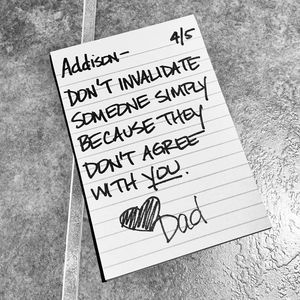 Addison- 4/5
DON'T INVALIDATE
SOMEONE SIMPLY
BECAUSE THEY
DON'T AGREE
WITH YOU.
Dad